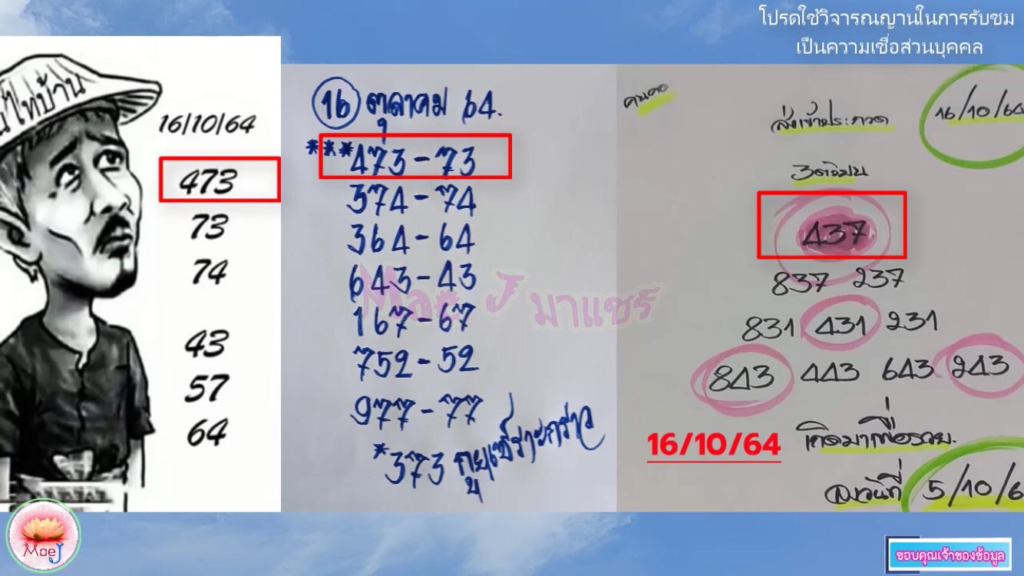 โปรดใช้วิจารณญานในการรับชม
เป็นความเชื่อส่วนบุคคล
16/10/64
473
73
74
43
57
64
16 ตุลาคม 64.
***473-73
374-74
364-64
643-43
167-67
752-52
977-77
*373
Mae J มาแชร์
คนคอ
16/10/64
ส่งเข้าประกวด
437
837 237
831 431 231
843 443 643 243
16/10/64
เกิดมาเพื่อรวย.
5/10/6
Mae J
ขอบคุณเจ้าของข้อมูล